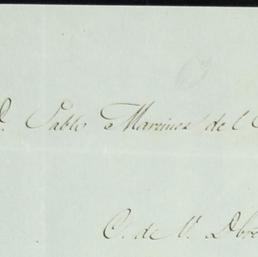 D. Pablo Martinez del
C. de V.